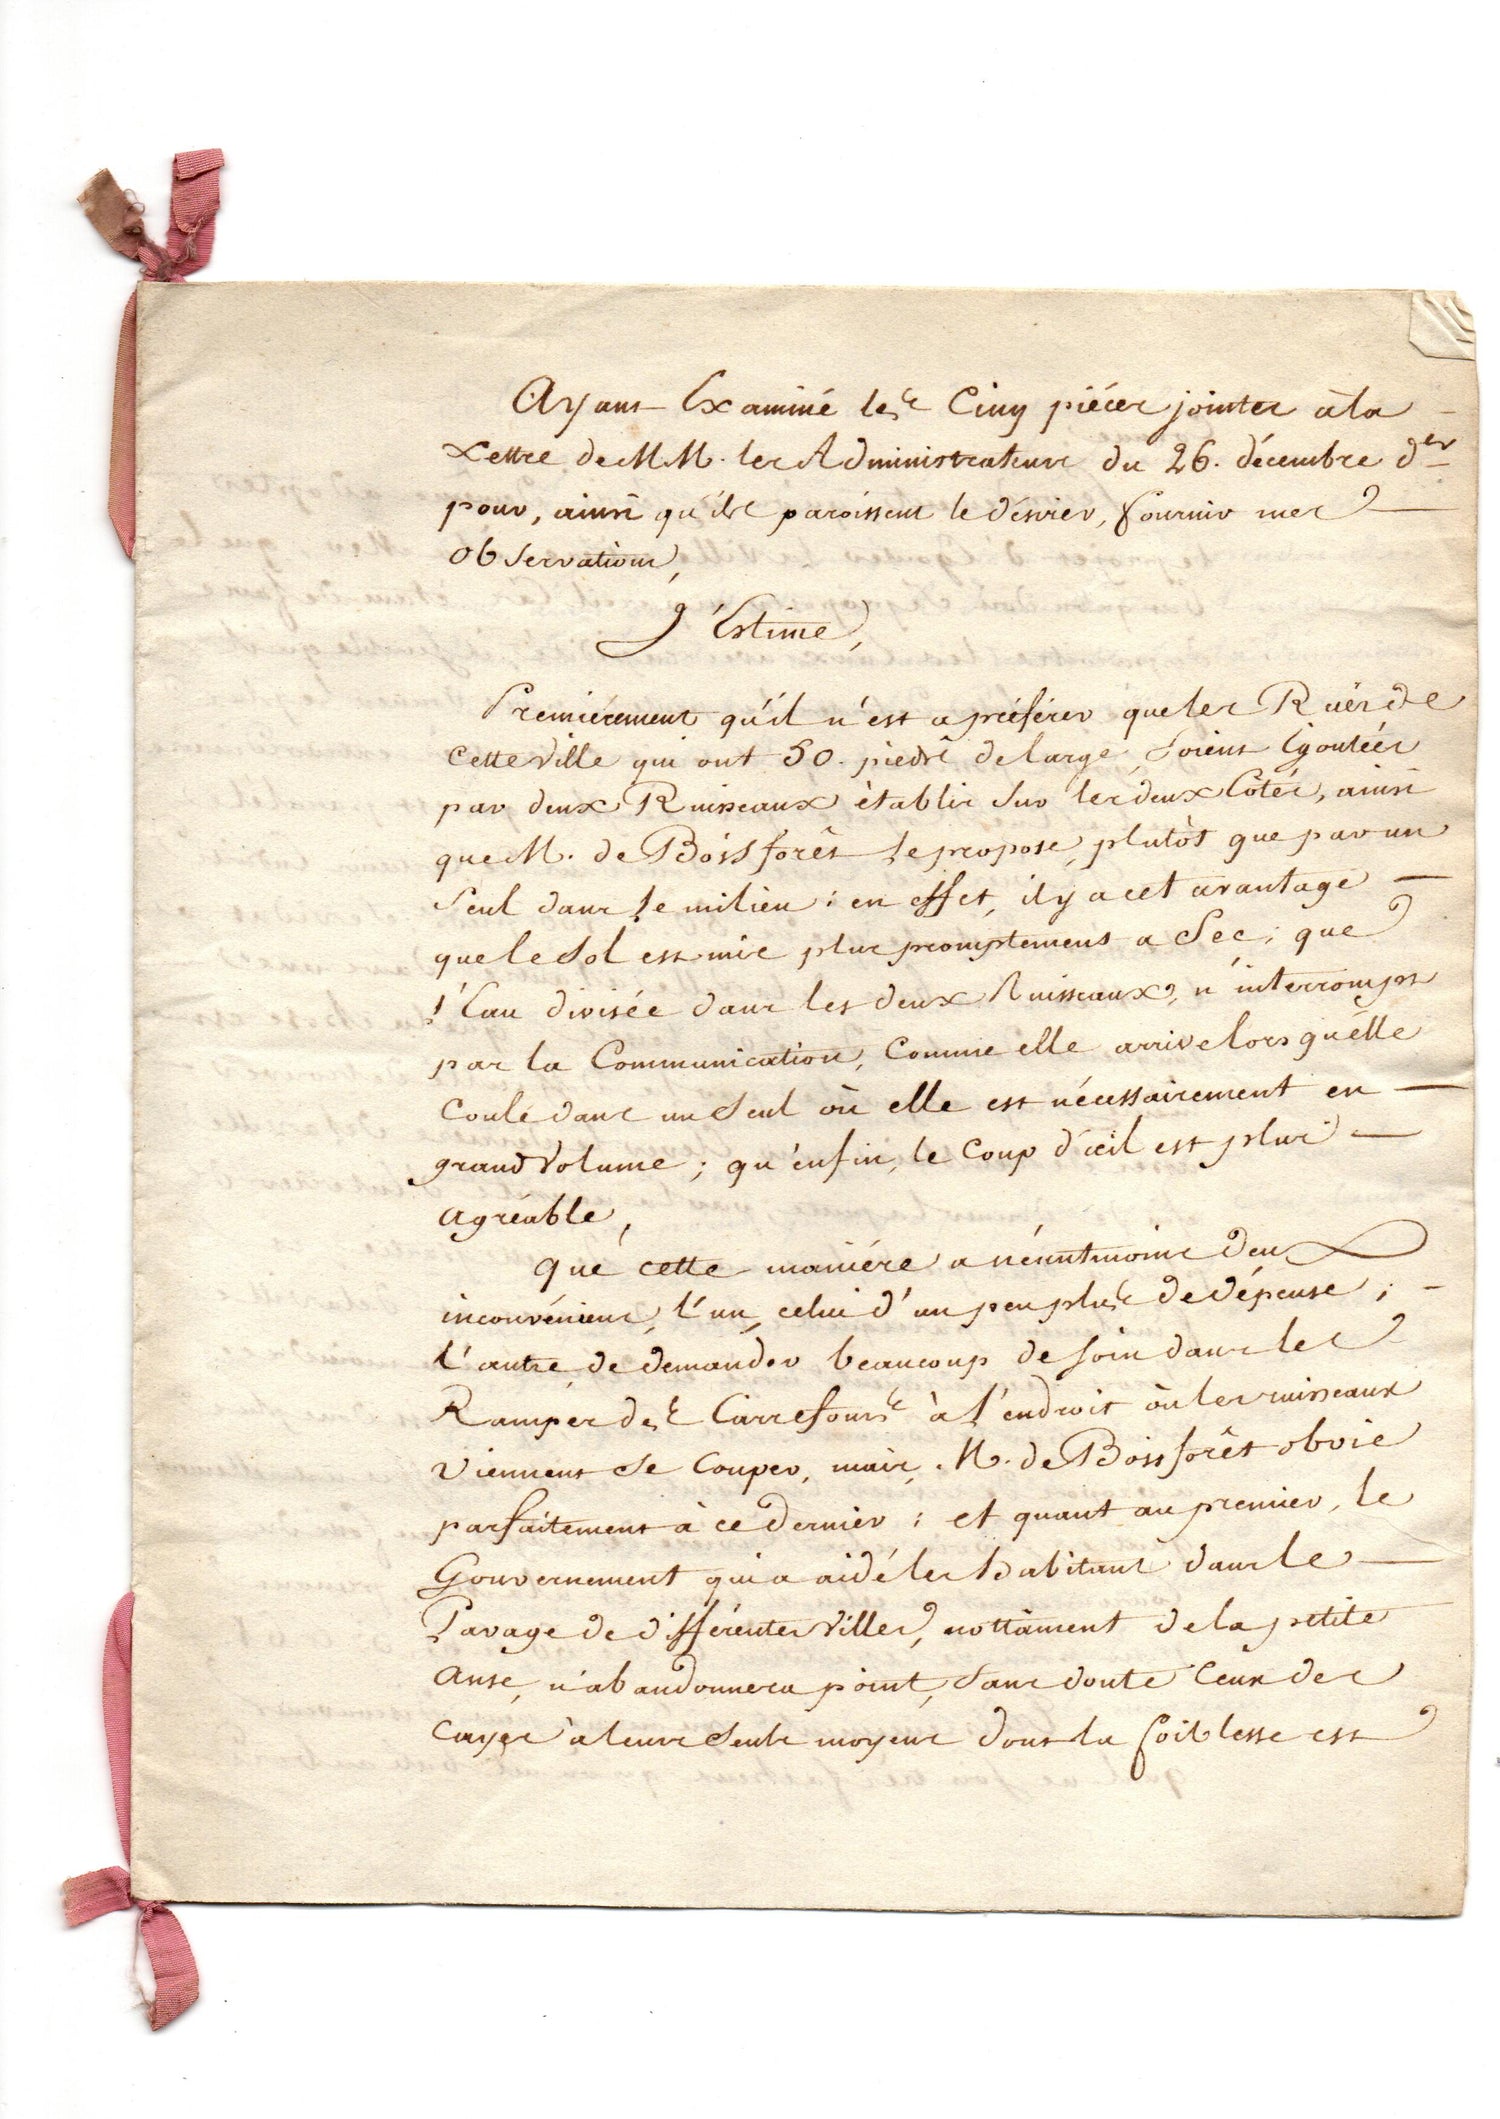 Ayant Examiné les Cinq piéces jointes à la
Lettre de MM. les Administrateurs du 26. décembre der
pour, ainsi qu'ils paroissent le désirer, fournir mes
observations,
J'Estime,
Premiérement qu'il n'est a préférer que les Ruës de
cette Ville qui ont 50. pieds de large, soient Egoutées
par deux Ruisseaux établis sur les deux Côtés, ainsi
que M. de Boisforêt le propose, plutôt que par un
seul dans le milieu : en effet, il y a cet avantage
que le sol est mis plus promptement a sec ; que
l'Eau divisée dans les deux Ruisseaux, n'interrompt
par la Communication, comme elle arrive lorsqu'elle
coule dans un seul où elle est nécessairement en
grand Volume ; qu'enfin, le Coup d'œil est plus
agréable,
que cette maniére a néantmoins deux
inconvéniens, l'un, celui d'un peu plus de dépense ;
l'autre, de demander beaucoup de soin dans les
Rampes des Carrefours à l'endroit où les ruisseaux
viennent se couper, mais, M. de Boisforêt obvie
parfaitement à ce dernier : et quant au premier, le
Gouvernement qui a aidé les habitans dans le
Pavage de différentes Villes, nottament de la petite
anse, n'abandonnera point, sans doute ceux des
cayes à leurs seuls moyens dont la foiblesse est